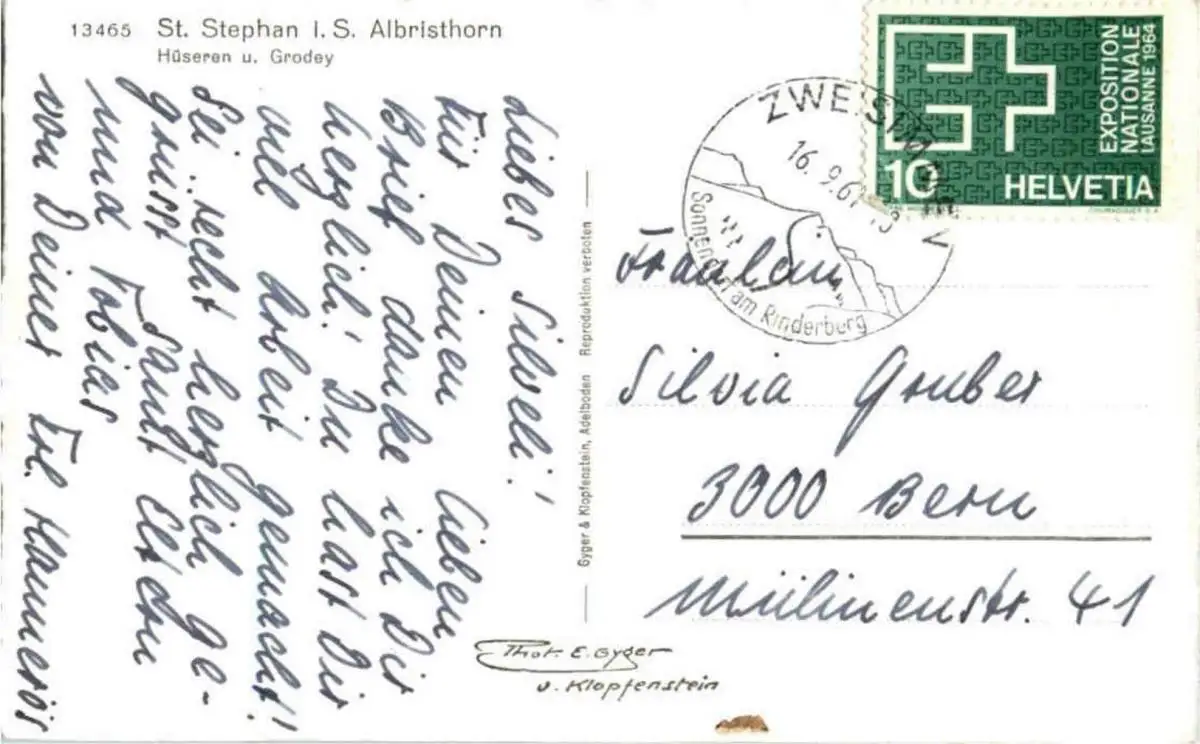 13465 St. Stephan i. S. Albristhorn
Hüseren u. Grodey
Liebes Silveli!
Für Deinen lieben
Brief danke ich Dir
herzlich! Du hast Dir
viel Arbeit gemacht!
Sei recht herzlich ge-
grüsst samt Eltern
und Tobias
von Deiner Frl. Hammerös
Gyger & Klopfenstein, Adelboden Reproduktion verboten
EXPOSITION
NATIONALE
LAUSANNE 1964
10
HELVETIA
ZWEISIMMEN
16. 9.
am Rinderberg
Fräulein
Silvia Gruber
3000 Bern
Mülinenstr. 41
Phot. E. Gyger
u. Klopfenstein